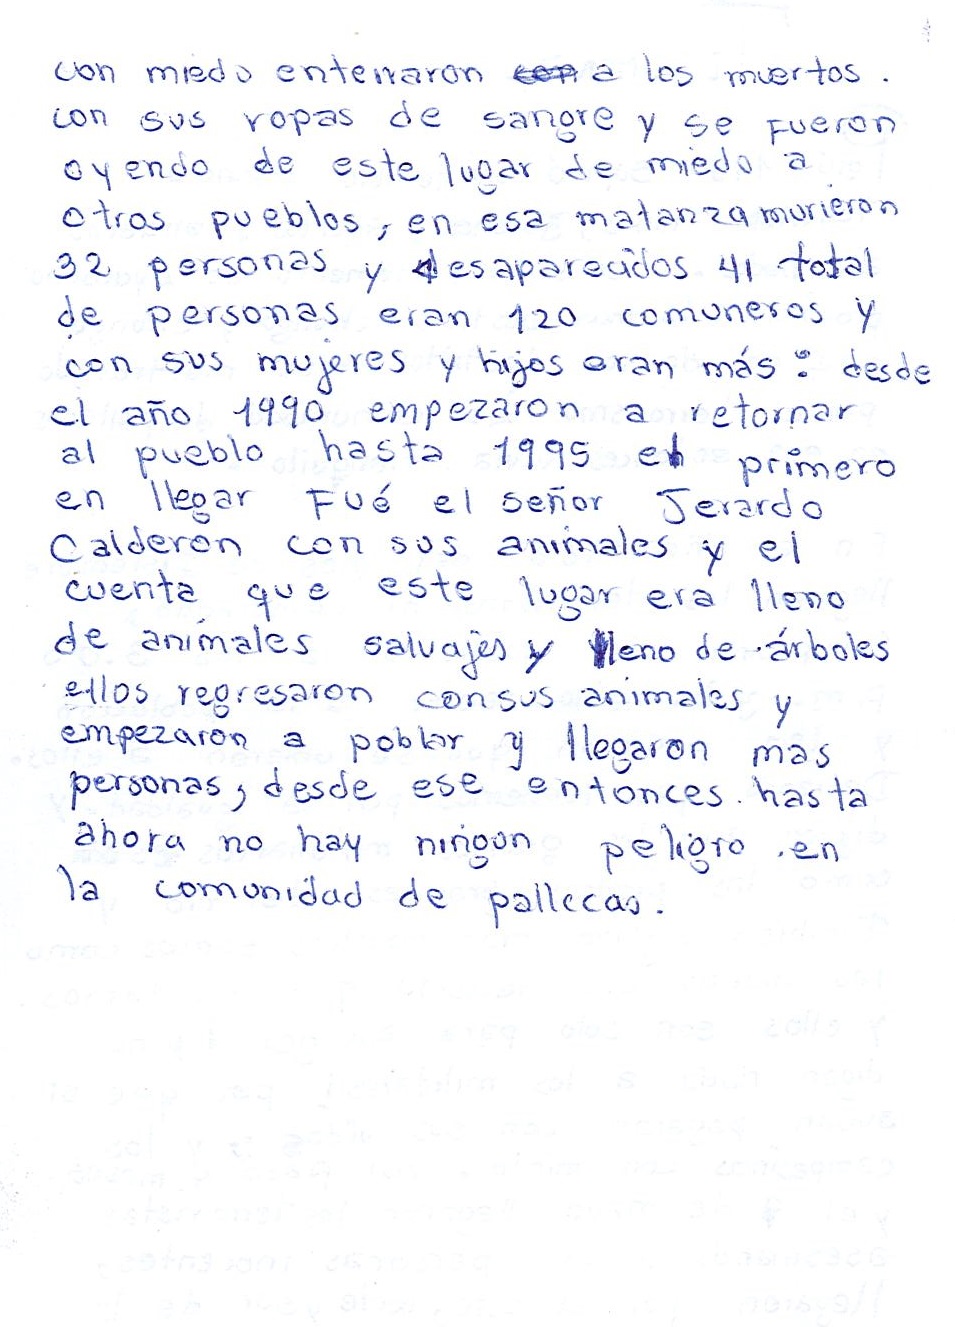 con miedo enterraron a los muertos.
con sus ropas de sangre y se fueron
oyendo de este lugar de miedo a
otros pueblos, en esa matanza murieron
32 personas y desaparecidos 41 total
de personas eran 120 comuneros y
con sus mujeres y hijos eran más: desde
el año 1990 empezaron a retornar
al pueblo hasta 1995 el primero
en llegar Fué el señor Jerardo
Calderon con sus animales y el
cuenta que este lugar era lleno
de animales salvajes y lleno de árboles
ellos regresaron con sus animales y
empezaron a poblar y llegaron mas
personas, desde ese entonces. hasta
ahora no hay ningun peligro .en
la comunidad de pallccas.